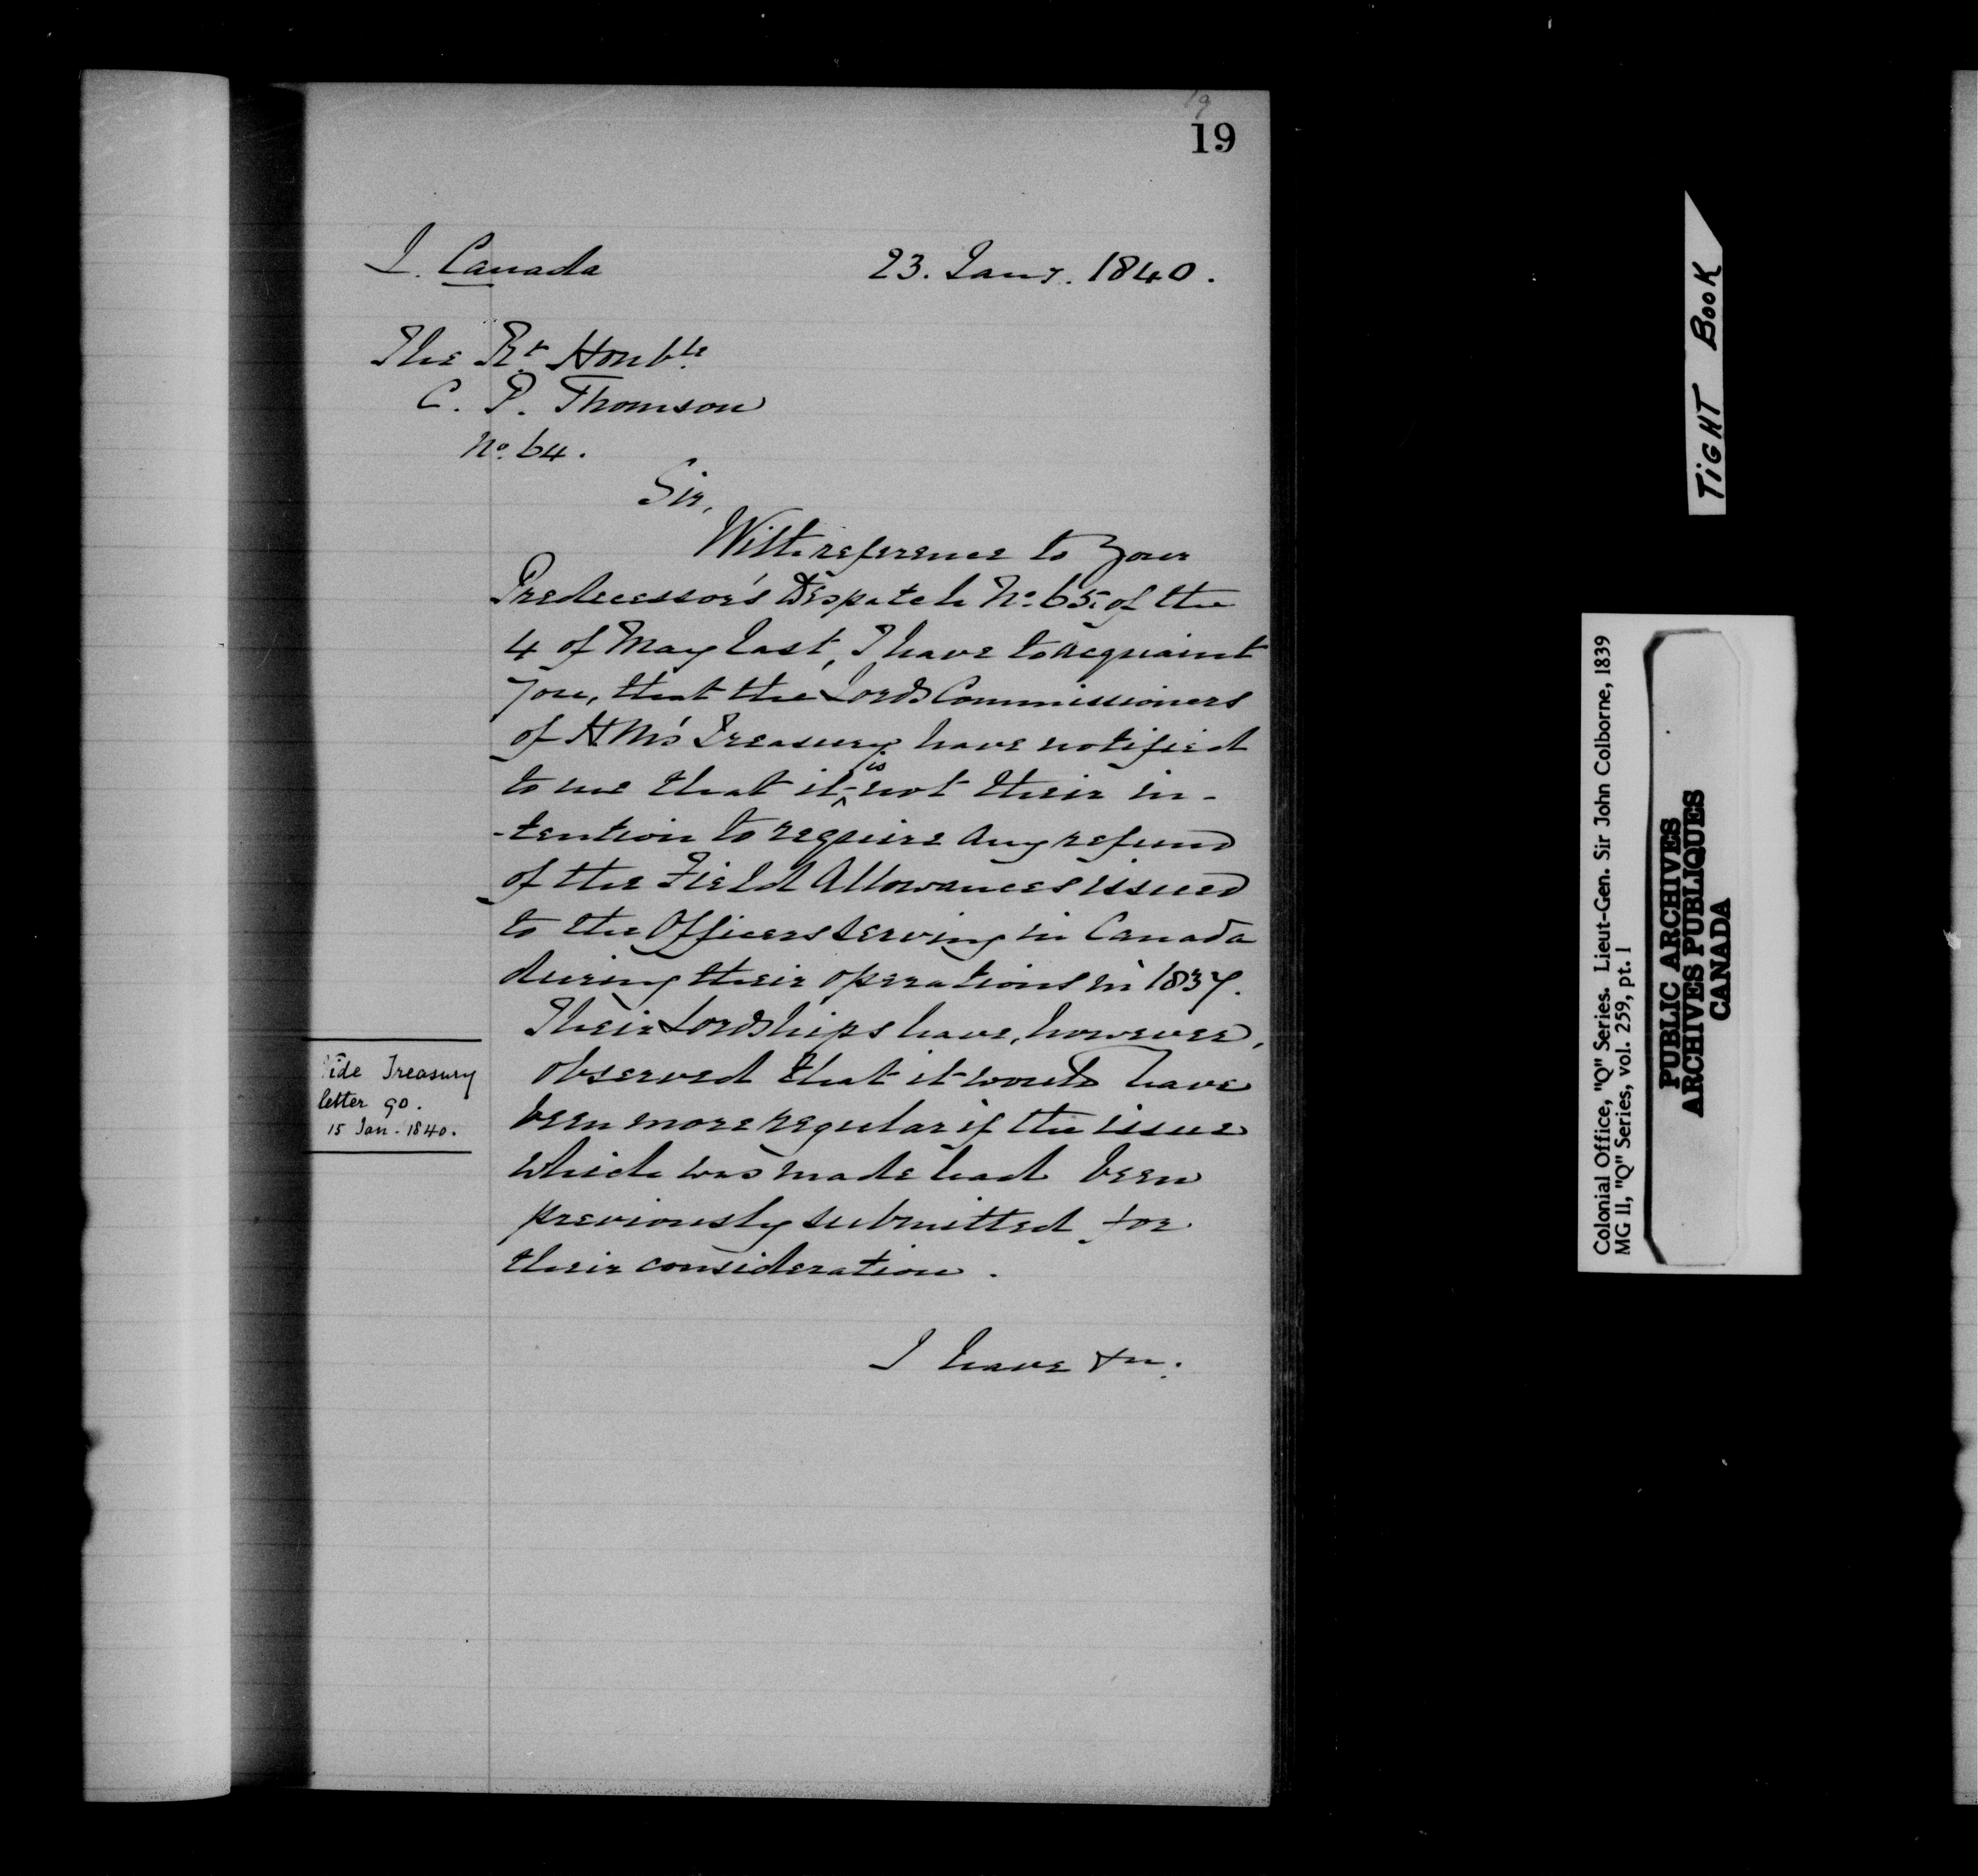 19
19
L. Canada 23. Jany. 1840.
The Rt. Honble.
C. P. Thomson
No. 64.
Sir,
With reference to Your
Predecessor's Despatch No. 65. of the
4 of May last, I have to acquaint
You, that the Lords Commissioners
of H M's Treasury have notified
to me that it ^is not their in-
-tention to require any refund
of the Field Allowances issued
to the Officers serving in Canada
during their operations in 1837.
Their Lordships have, however,
observed that it would have
been more regular if the issue
which was made had been
previously submitted for
their consideration.
I have &c.
Vide Treasury
letter 90.
15 Jan. 1840.
TIGHT BOOK
Colonial Office, "Q" Series. Lieut-Gen. Sir John Colborne, 1839
MG 11, "Q" Series, vol. 259, pt. 1
PUBLIC ARCHIVES
ARCHIVES PUBLIQUES
CANADA